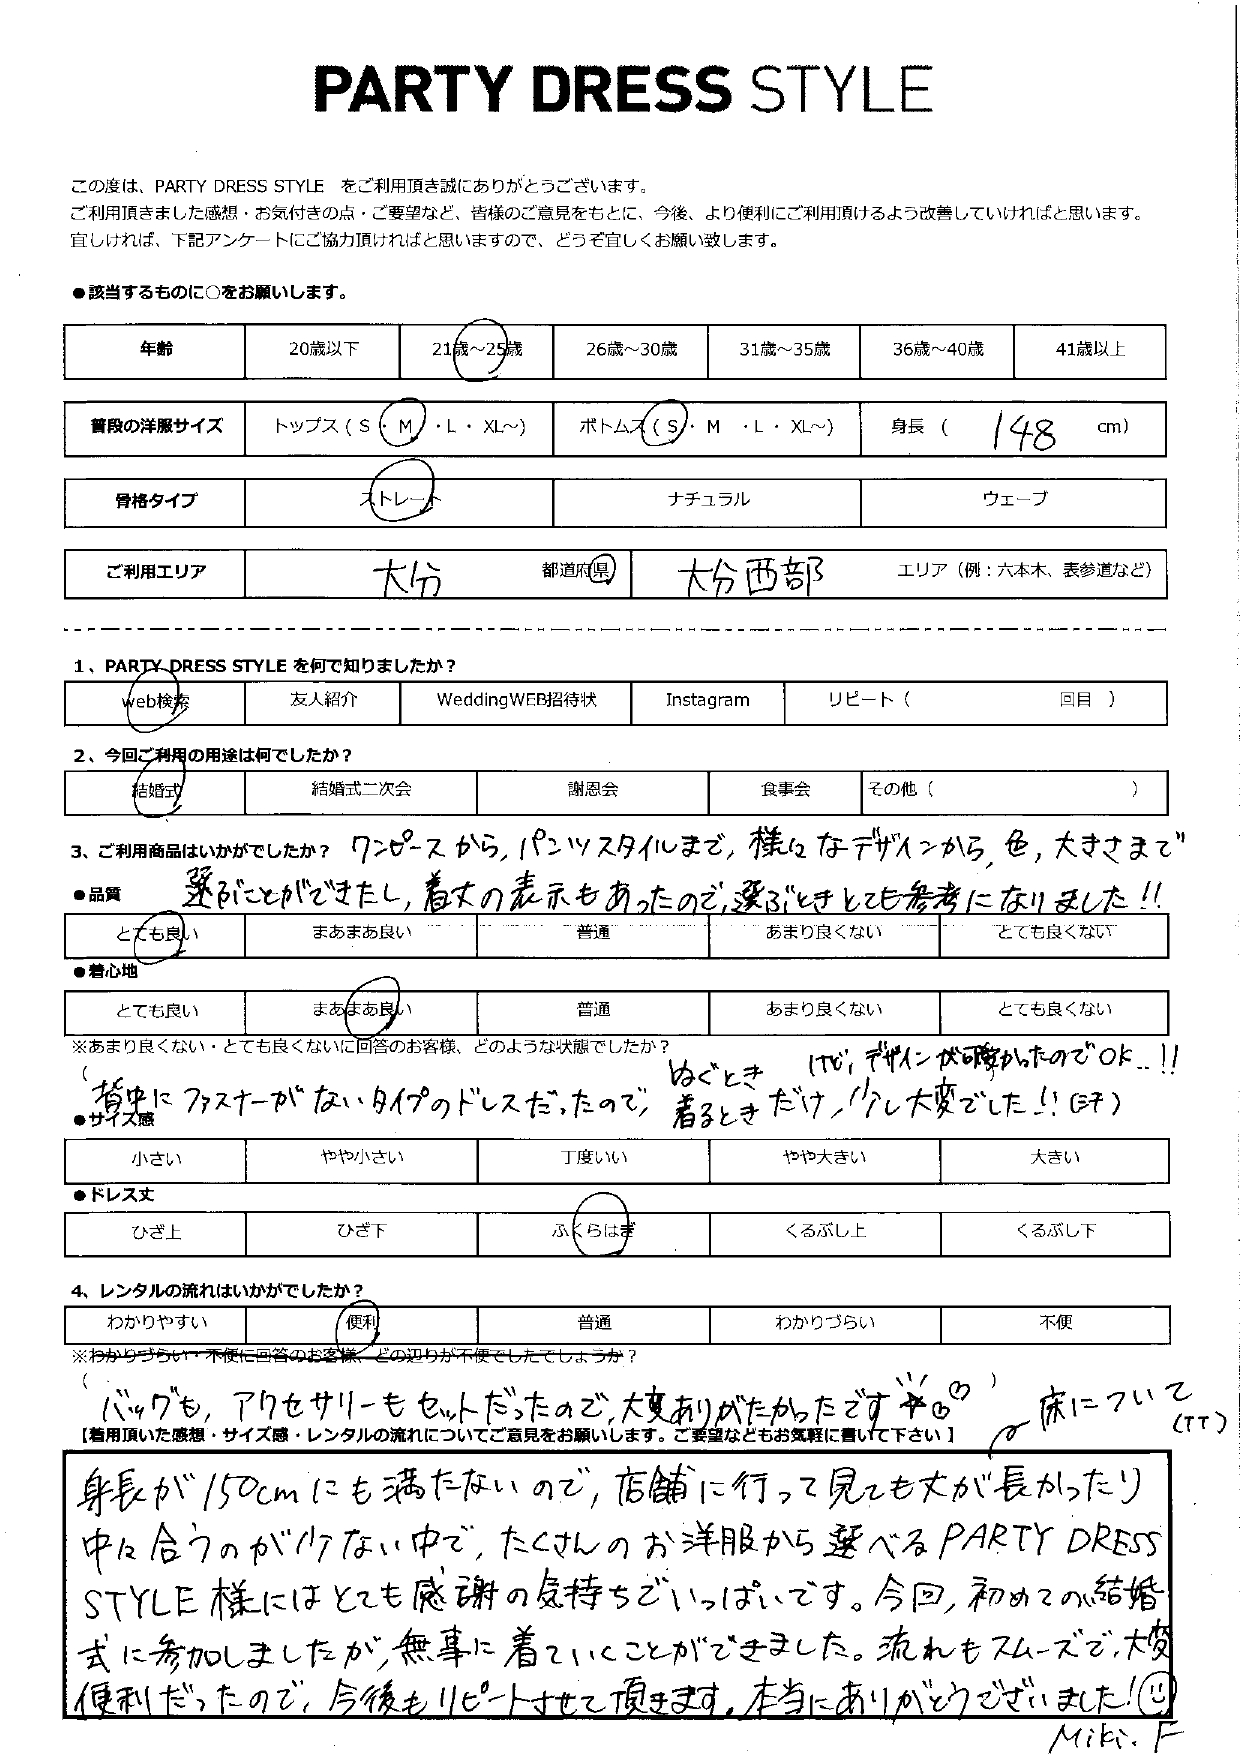 PARTY DRESS STYLE
この度は、PARTY DRESS STYLE をご利用頂き誠にありがとうございます。
ご利用頂きました感想・お気付きの点・ご要望など、皆様のご意見をもとに、今後、より便利にご利用頂けるよう改善していければと思います。
宜しければ、下記アンケートにご協力頂ければと思いますので、どうぞ宜しくお願い致します。
●該当するものに○をお願いします。
年齢 20歳以下 21歳～25歳 26歳～30歳 31歳～35歳 36歳～40歳 41歳以上
普段の洋服サイズ トップス ( S ・ M ・L ・ XL～) ボトムス ( S ・ M ・L ・ XL～) 身長 ( 148 cm)
骨格タイプ ストレート ナチュラル ウェーブ
ご利用エリア 大分 都道府県 大分西部 エリア（例：六本木、表参道など）
1、PARTY DRESS STYLE を何で知りましたか？
web検索 友人紹介 WeddingWEB招待状 Instagram リピート（ 回目 ）
2、今回ご利用の用途は何でしたか？
結婚式 結婚式二次会 謝恩会 食事会 その他（ ）
3、ご利用商品はいかがでしたか？ ワンピースから, パンツスタイルまで, 様々なデザインから, 色, 大きさまで
●品質 選ぶことができたし, 着丈の表示もあったので, 選ぶときとても参考になりました!!
とても良い まあまあ良い 普通 あまり良くない とても良くない
●着心地
とても良い まあまあ良い 普通 あまり良くない とても良くない
※あまり良くない・とても良くないに回答のお客様、どのような状態でしたか？
けど, デザインが可愛かったのでOK..!!
( 背中にファスナーがないタイプのドレスだったので, ぬぐとき 着るとき だけ, 少し大変でした!! (汗)
●サイズ感
小さい やや小さい 丁度いい やや大きい 大きい
●ドレス丈
ひざ上 ひざ下 ふくらはぎ くるぶし上 くるぶし下
4、レンタルの流れはいかがでしたか？
わかりやすい 便利 普通 わかりづらい 不便
※わかりづらい・不便に回答のお客様、どの辺りが不便でしたでしょうか？
( バッグも, アクセサリーもセットだったので, 大変ありがたかったです☆♡♡ )
床について (TT)
【着用頂いた感想・サイズ感・レンタルの流れについてご意見をお願いします。ご要望などもお気軽に書いて下さい 】
身長が150cmにも満たないので, 店舗に行って見ても丈が長かったり
中々合うのが少ない中で, たくさんのお洋服から選べるPARTY DRESS
STYLE様にはとても感謝の気持ちでいっぱいです。今回, 初めての結婚
式に参加しましたが, 無事に着ていくことができました。流れもスムーズで, 大変
便利だったので, 今後もリピートさせて頂きます。本当にありがとうございました!
Miki. F